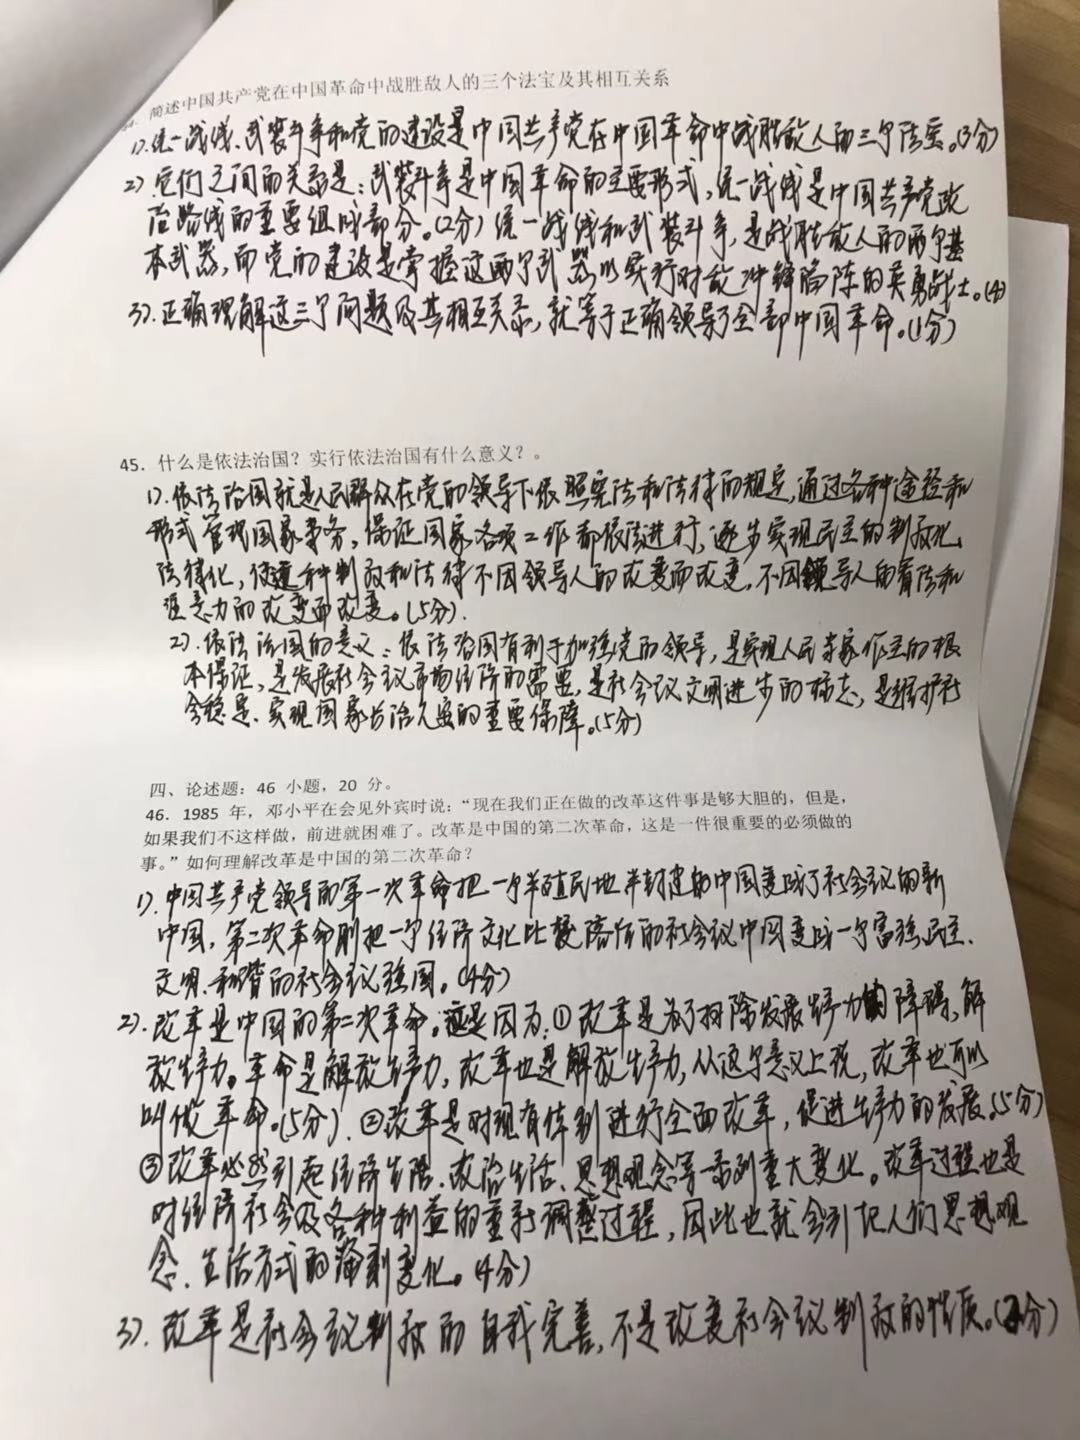 44. 简述中国共产党在中国革命中战胜敌人的三个法宝及其相互关系
1).统一战线、武装斗争和党的建设是中国共产党在中国革命中战胜敌人的三个法宝。(3分)
2) 它们之间的关系是：武装斗争是中国革命的主要形式，统一战线是中国共产党政
治路线的重要组成部分。(2分) 统一战线和武装斗争，是战胜敌人的两个基
本武器，而党的建设是掌握这两个武器以实行对敌冲锋陷阵的英勇战士。(4)
3).正确理解这三个问题及其相互关系，就等于正确领导了全部中国革命。(1分)
45. 什么是依法治国？实行依法治国有什么意义？。
1).依法治国就是人民群众在党的领导下依照宪法和法律的规定，通过各种途径和
形式管理国家事务，保证国家各项工作都依法进行，逐步实现民主的制度化、
法律化，使这种制度和法律不因领导人的改变而改变，不因领导人的看法和
注意力的改变而改变。(5分).
2).依法治国的意义：依法治国有利于加强党的领导，是实现人民当家作主的根
本保证，是发展社会主义市场经济的需要，是社会主义文明进步的标志，是维护社
会稳定、实现国家长治久安的重要保障。(5分)
四、论述题：46 小题，20 分。
46. 1985 年，邓小平在会见外宾时说：“现在我们正在做的改革这件事是够大胆的，但是，
如果我们不这样做，前进就困难了。改革是中国的第二次革命，这是一件很重要的必须做的
事。”如何理解改革是中国的第二次革命？
1).中国共产党领导的第一次革命把一个半殖民地半封建的中国变成了社会主义的新
中国，第二次革命则把一个经济文化比较落后的社会主义中国变成一个富强、民主、
文明、和谐的社会主义强国。(4分)
2).改革是中国的第二次革命。这是因为：①改革是为了扫除发展生产力的障碍，解
放生产力。革命是解放生产力，改革也是解放生产力，从这个意义上说，改革也可以
叫做革命。(5分)．②改革是对现有体制进行全面改革，促进生产力的发展。(5分)
③改革必然引起经济生活、政治生活、思想观念等一系列重大变化。改革过程也是
对经济社会及各种利益的重新调整过程，因此也就会引起人们思想观
念、生活方式的深刻变化。(4分)
3).改革是社会主义制度的自我完善，不是改变社会主义制度的性质。(2分)